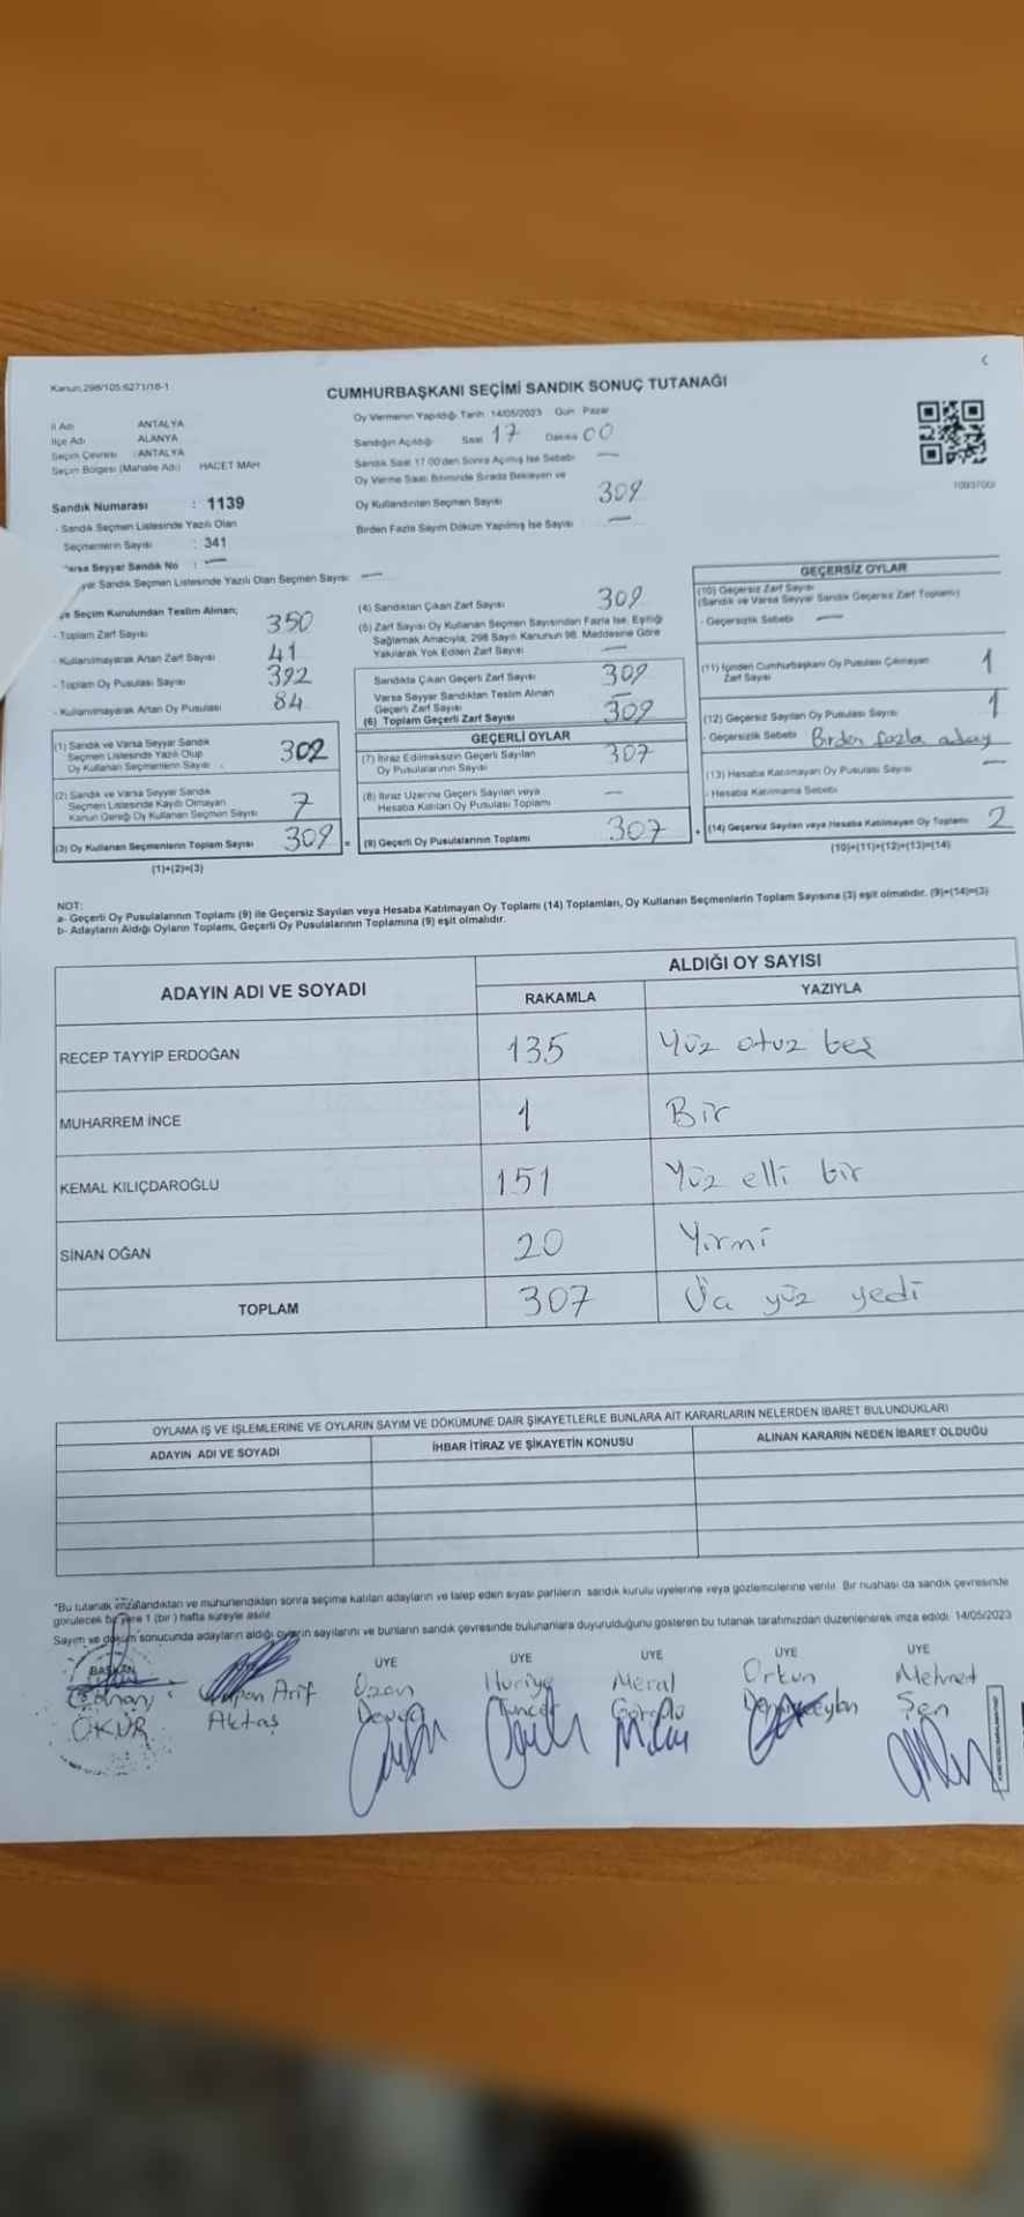 Kanun:298/105,6271/16-1
CUMHURBAŞKANI SEÇİMİ SANDIK SONUÇ TUTANAĞI
İl Adı : ANTALYA
İlçe Adı : ALANYA
Seçim Çevresi : ANTALYA
Seçim Bölgesi (Mahalle Adı) HACET MAH.
Sandık Numarası : 1139
- Sandık Seçmen Listesinde Yazılı Olan
Seçmenlerin Sayısı : 341
Varsa Seyyar Sandık No : —
Sandık Seçmen Listesinde Yazılı Olan Seçmen Sayısı: —
Oy Vermenin Yapıldığı Tarih: 14/05/2023 Gün: Pazar
Sandığın Açıldığı Saat 17 Dakika 00
Sandık Saat 17.00'den Sonra Açılmış İse Sebebi —
Oy Verme Saati Bitiminde Sırada Bekleyen ve
Oy Kullandırılan Seçmen Sayısı 309
Birden Fazla Sayım Döküm Yapılmış İse Sayısı —
Seçim Kurulundan Teslim Alınan;
- Toplam Zarf Sayısı 350
- Kullanılmayarak Artan Zarf Sayısı 41
- Toplam Oy Pusulası Sayısı 392
- Kullanılmayarak Artan Oy Pusulası 84
(1) Sandık ve Varsa Seyyar Sandık
Seçmen Listesinde Yazılı Olup
Oy Kullanan Seçmenlerin Sayısı 302
(2) Sandık ve Varsa Seyyar Sandık
Seçmen Listesinde Kayıtlı Olmayan
Kanun Gereği Oy Kullanan Seçmen Sayısı 7
(3) Oy Kullanan Seçmenlerin Toplam Sayısı 309 =
(1)+(2)=(3)
(4) Sandıktan Çıkan Zarf Sayısı 309
(5) Zarf Sayısı Oy Kullanan Seçmen Sayısından Fazla İse, Eşitliği
Sağlamak Amacıyla, 298 Sayılı Kanunun 98. Maddesine Göre
Yakılarak Yok Edilen Zarf Sayısı —
Sandıkta Çıkan Geçerli Zarf Sayısı 309
Varsa Seyyar Sandıktan Teslim Alınan
Geçerli Zarf Sayısı —
(6) Toplam Geçerli Zarf Sayısı 309
GEÇERLİ OYLAR
(7) İtiraz Edilmeksizin Geçerli Sayılan
Oy Pusulalarının Sayısı 307
(8) İtiraz Üzerine Geçerli Sayılan veya
Hesaba Katılan Oy Pusulası Toplamı —
(9) Geçerli Oy Pusulalarının Toplamı 307 +
GEÇERSİZ OYLAR
(10) Geçersiz Zarf Sayısı
(Sandık ve Varsa Seyyar Sandık Geçersiz Zarf Toplamı)
- Geçersizlik Sebebi —
(11) İçinden Cumhurbaşkanı Oy Pusulası Çıkmayan
Zarf Sayısı 1
(12) Geçersiz Sayılan Oy Pusulası Sayısı 1
- Geçersizlik Sebebi Birden fazla aday
(13) Hesaba Katılmayan Oy Pusulası Sayısı —
- Hesaba Katılmama Sebebi
(14) Geçersiz Sayılan veya Hesaba Katılmayan Oy Toplamı 2
(10)+(11)+(12)+(13)=(14)
NOT:
a- Geçerli Oy Pusulalarının Toplamı (9) ile Geçersiz Sayılan veya Hesaba Katılmayan Oy Toplamı (14) Toplamları, Oy Kullanan Seçmenlerin Toplam Sayısına (3) eşit olmalıdır. (9)+(14)=(3)
b- Adayların Aldığı Oyların Toplamı, Geçerli Oy Pusulalarının Toplamına (9) eşit olmalıdır.
ADAYIN ADI VE SOYADI
ALDIĞI OY SAYISI
RAKAMLA YAZIYLA
RECEP TAYYİP ERDOĞAN 135 Yüz otuz beş
MUHARREM İNCE 1 Bir
KEMAL KILIÇDAROĞLU 151 Yüz elli bir
SİNAN OĞAN 20 Yirmi
TOPLAM 307 Üç yüz yedi
OYLAMA İŞ VE İŞLEMLERİNE VE OYLARIN SAYIM VE DÖKÜMÜNE DAİR ŞİKAYETLERLE BUNLARA AİT KARARLARIN NELERDEN İBARET BULUNDUKLARI
ADAYIN ADI VE SOYADI İHBAR İTİRAZ VE ŞİKAYETİN KONUSU ALINAN KARARIN NEDEN İBARET OLDUĞU
*Bu tutanak imzalandıktan ve mühürlendikten sonra seçime katılan adayların ve talep eden siyasi partilerin sandık kurulu üyelerine veya gözlemcilerine verilir. Bir nushası da sandık çevresinde
görülecek bir yere 1 (bir) hafta süreyle asılır.
Sayım ve döküm sonucunda adayların aldığı oyların sayılarını ve bunların sandık çevresinde bulunanlara duyurulduğunu gösteren bu tutanak tarafımızdan düzenlenerek imza edildi. 14/05/2023
BAŞKAN ÜYE ÜYE ÜYE ÜYE ÜYE
Arif Ozan Huriye Meral Orkun Mehmet
ÖKÜR Aktaş Şen